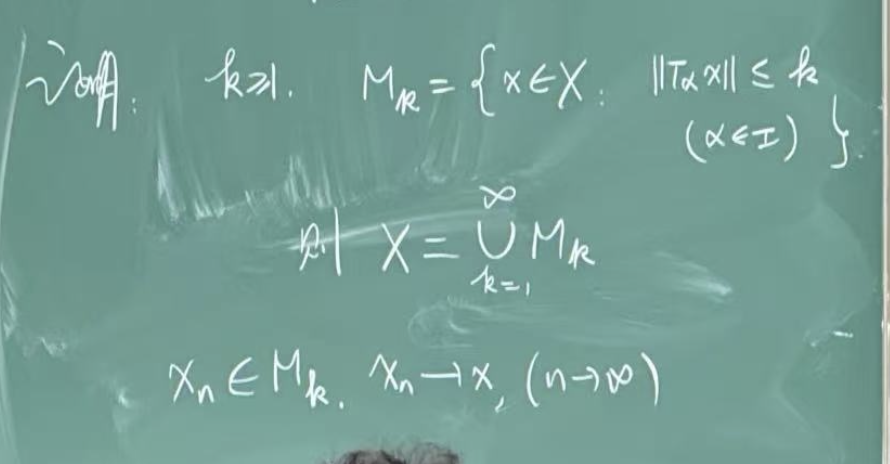 证明: k≥1. M_k = { x∈X: ‖T_α x‖ ≤ k
(α∈I) }.
则 X = ⋃_{k=1}^{∞} M_k
x_n ∈ M_k. x_n → x, (n→∞)